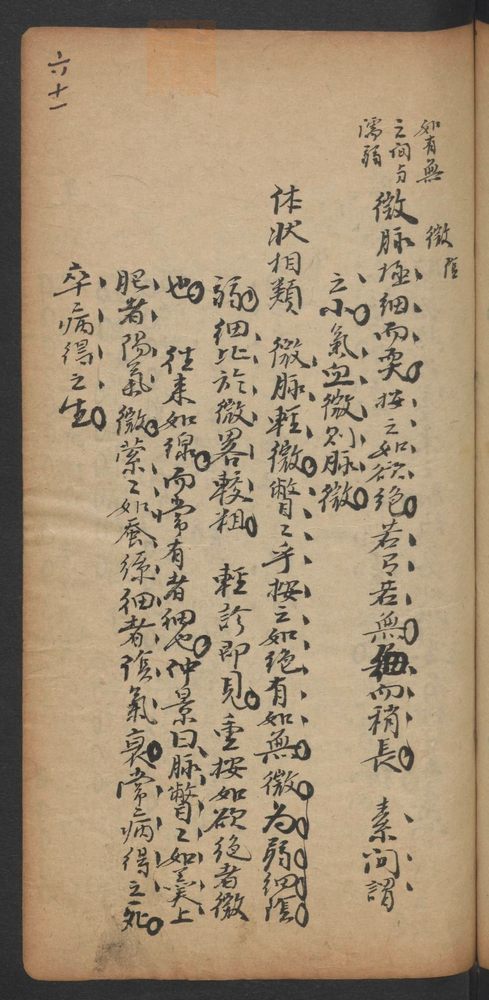 六十一
微陰
如有無
之间与
濡弱
微脉極细而耎按之如欲绝若有若無細而稍長 素问謂
之小氣血微则脉微
体状相類 微脉輕微瞥〻乎按之如绝有如無微为弱细陰
弱细比於微畧較粗 輕診即見重按如欲绝者微
也 往来如線而常有者细也仲景曰脉瞥〻如羹上
肥者陽氣微萦〻如蚕絲细者陰氣衰常病得之死
卒病得之生